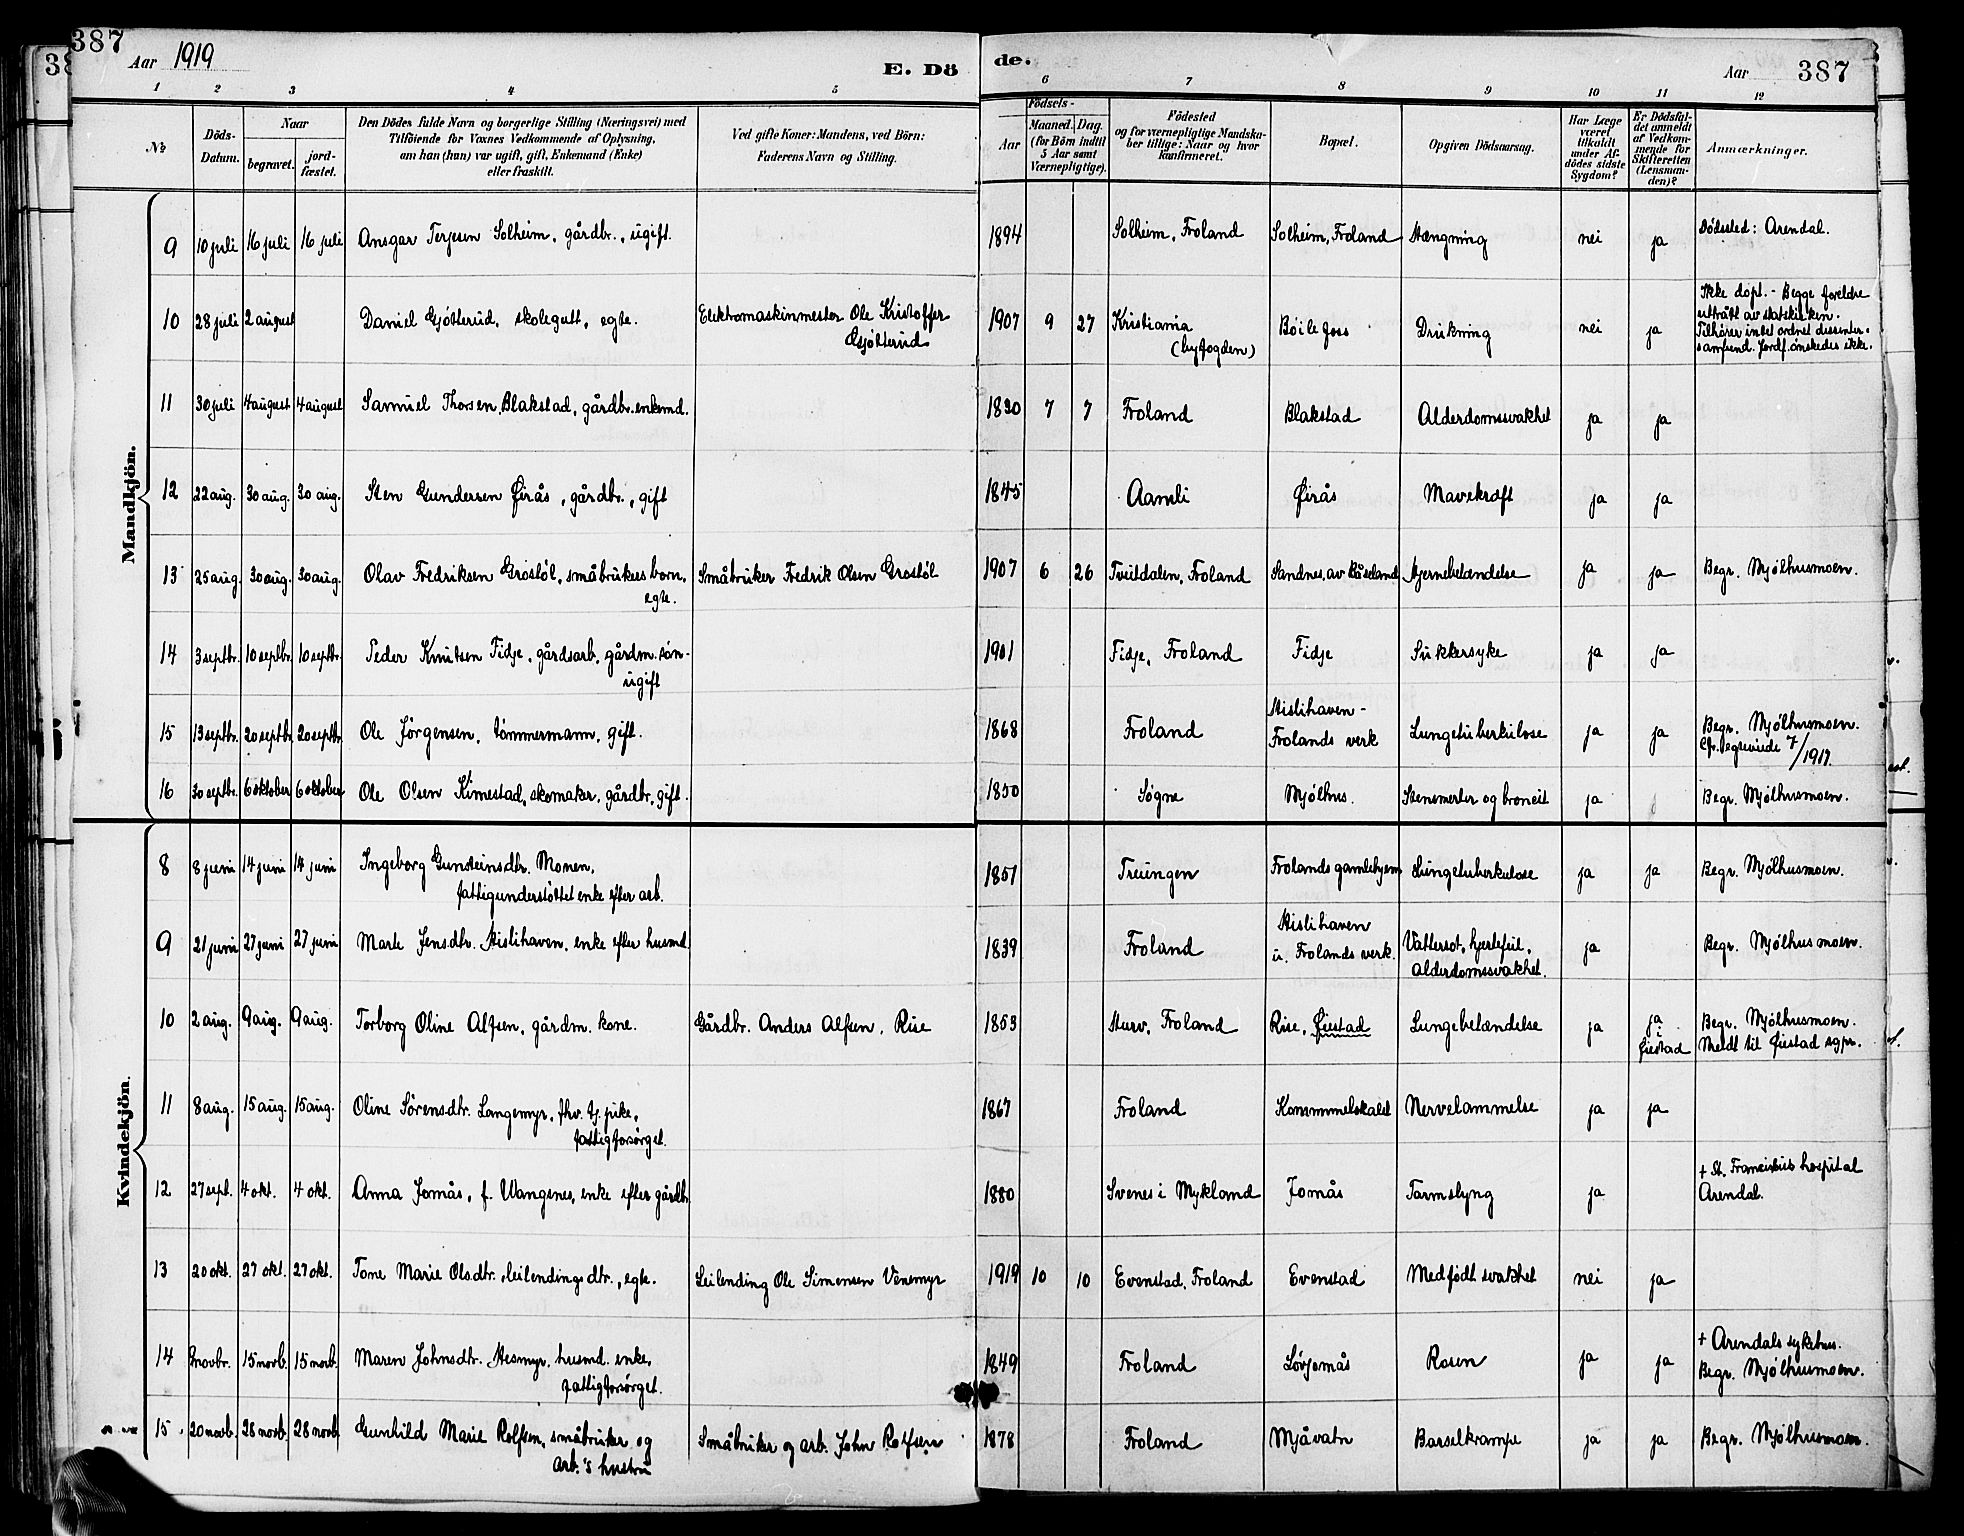 387
Aar 1919
E. Dö
de.
Aar
387
1 2 3 4 5 6 7 8 9 10 11 12
No
Döds-Datum.
Naar
begravet.
jord-fæstet.
Den Dödes fulde Navn og borgerlige Stilling (Næringsvei) med
Tilföiende for Voxnes Vedkommende af Oplysning,
om han (hun) var ugift, gift, Enkemand (Enke)
eller fraskilt.
Ved gifte Koner: Mandens, ved Börn:
Faderens Navn og Stilling.
Födsels-
Aar
Maaned. Dag.
(for Börn indtil
5 Aar samt
Værnepligtige).
Födested
og for værnepligtige Mandska-
ber tillige: Naar og hvor
konfirmeret.
Bopæl.
Opgiven Dödsaarsag.
Har Læge
været
tilkaldt
under Af-
dödes sidste
Sygdom?
Er Dödsfal-
det anmeldt
af Vedkom-
mende for
Skifteretten
(Lensman-
den)?
Anmærkninger.
Mandkjön.
9 10 juli 16 juli 16 juli Ansgar Terjesen Solheim, gårdbr., ugift. 1894 Solheim, Froland Solheim, Froland Stængning nei ja Dödssted: Arendal.
10 28 juli 2 august Daniel Gjötterud, skolegutt, egte. Elektromaskinmester Ole Kristoffer
Gjötterud
1907 9 27 Kristiania
(byfogden)
Böilefoss Drukning nei ja
Ikke döpt. - Begge foreldre
utträdt av statskirken.
Tilhörer intet ordnet dissenter-
samfund. Jordf. önskedes ikke.
11 30 juli 4 august 4 august Samuel Thorsen Blakstad, gårdbr. enkemd. 1830 7 7 Froland Blakstad Alderdomssvakhet ja ja
12 22 aug. 30 aug. 30 aug. Sten Gundersen Øirås, gårdbr., gift 1845 Aamli Øirås Mavekræft ja ja
13 25 aug. 30 aug. 30 aug. Olav Fredriksen Grostöl, småbrukers barn,
egte.
Småbruker Fredrik Olsen Grostöl 1907 6 26 Tveitdalen, Froland Sandnes, av Båseland Hjernebetændelse ja ja Begr. Mjölhusmoen.
14 3 septbr. 10 septbr. 10 septbr. Peder Knutsen Fidje, gårdsarb, gårdm. sön-
ugift
1901 Fidje, Froland Fidje Sukkersyke ja ja
15 13 septbr. 20 septbr. 20 septbr. Ole Jörgensen, tömmermann, gift. 1868 Froland Stislihaven -
Frolands verk
Lungetuberkulose ja ja Begr. Mjölhusmoen.
7/1917.
16 30 septbr. 6 oktober 6 oktober Ole Olsen Kimestad, skomaker, gårdbr, gift. 1850 Sögne Mjölhus. Stensmerter og broncit ja Begr. Mjölhusmoen.
Kvindekjön.
8 8 juni 14 juni 14 juni Ingeborg Gunsteinsdtr. Monen,
fattigunderstöttet enke efter arb.
1851 Treungen Frolands gamlehjem Lungetuberkulose ja ja Begr. Mjölhusmoen.
9 21 juni 27 juni 27 juni Marte Jensdtr. Stislihaven, enke efter husmd. 1839 Froland Stislihaven
u. Frolands verk.
Vattersot, hjertefeil,
alderdomssvakhet.
ja Begr. Mjölhusmoen.
10 2 aug. 9 aug. 9 aug. Torborg Oline Alfsen, gårdm. kone. Gårdbr. Anders Alfsen, Rise 1853 Sturv, Froland Rise, Øiestad Lungebetændelse ja ja
i
Øiestad
Begr. Mjölhusmoen.
Meldt til Øiestad sgpr.
11 8 aug. 15 aug. 15 aug. Oline Sörensdtr. Langemyr, fhv. tj. pike,
fattigforsörget.
1867 Froland Konsmmelskalet Nervelammelse ja ja
12 27 sept. 4 okt. 4 okt. Anna Jomås, f. Wangsnes, enke efter gårdbr. 1880 Svenes i Mykland Jomås Tarmslyng ja
+ St. Franciskus hospital
Arendal.
13 20 okt. 27 okt. 27 okt. Tone Marie Olsdtr., leilendingsdtr., egte. Leilending Ole Simonsen Venemyr 1919 10 10 Evenstad, Froland Evenstad Medfödt svakhet nei ja
14 novbr. 15 novb. 15 novb. Maren Johnsdtr. Stesmyr, husmd. enke,
fattigforsörget.
1849 Froland Lövjomås Rosen ja ja
+ Arendals sykehus.
Begr. Mjölhusmoen.
15 20 novb. 28 novb. 28 novb. Gunhild Marie Rolfsen, småbruker og
arb.'s hustru
Småbruker og arb. John Rolfsen 1878 Froland Mjåvatn Barselkrampe ja ja Begr. Mjölhusmoen.